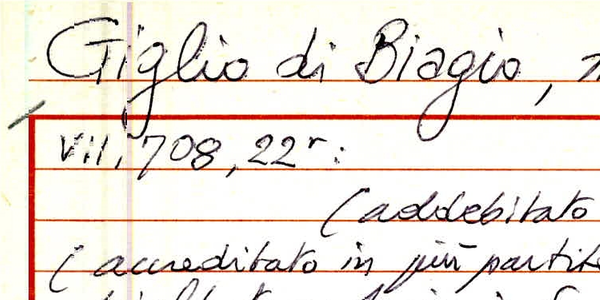 Giglio di Biagio,
VII, 708, 22r:
(addebitato
(accreditato in più partite